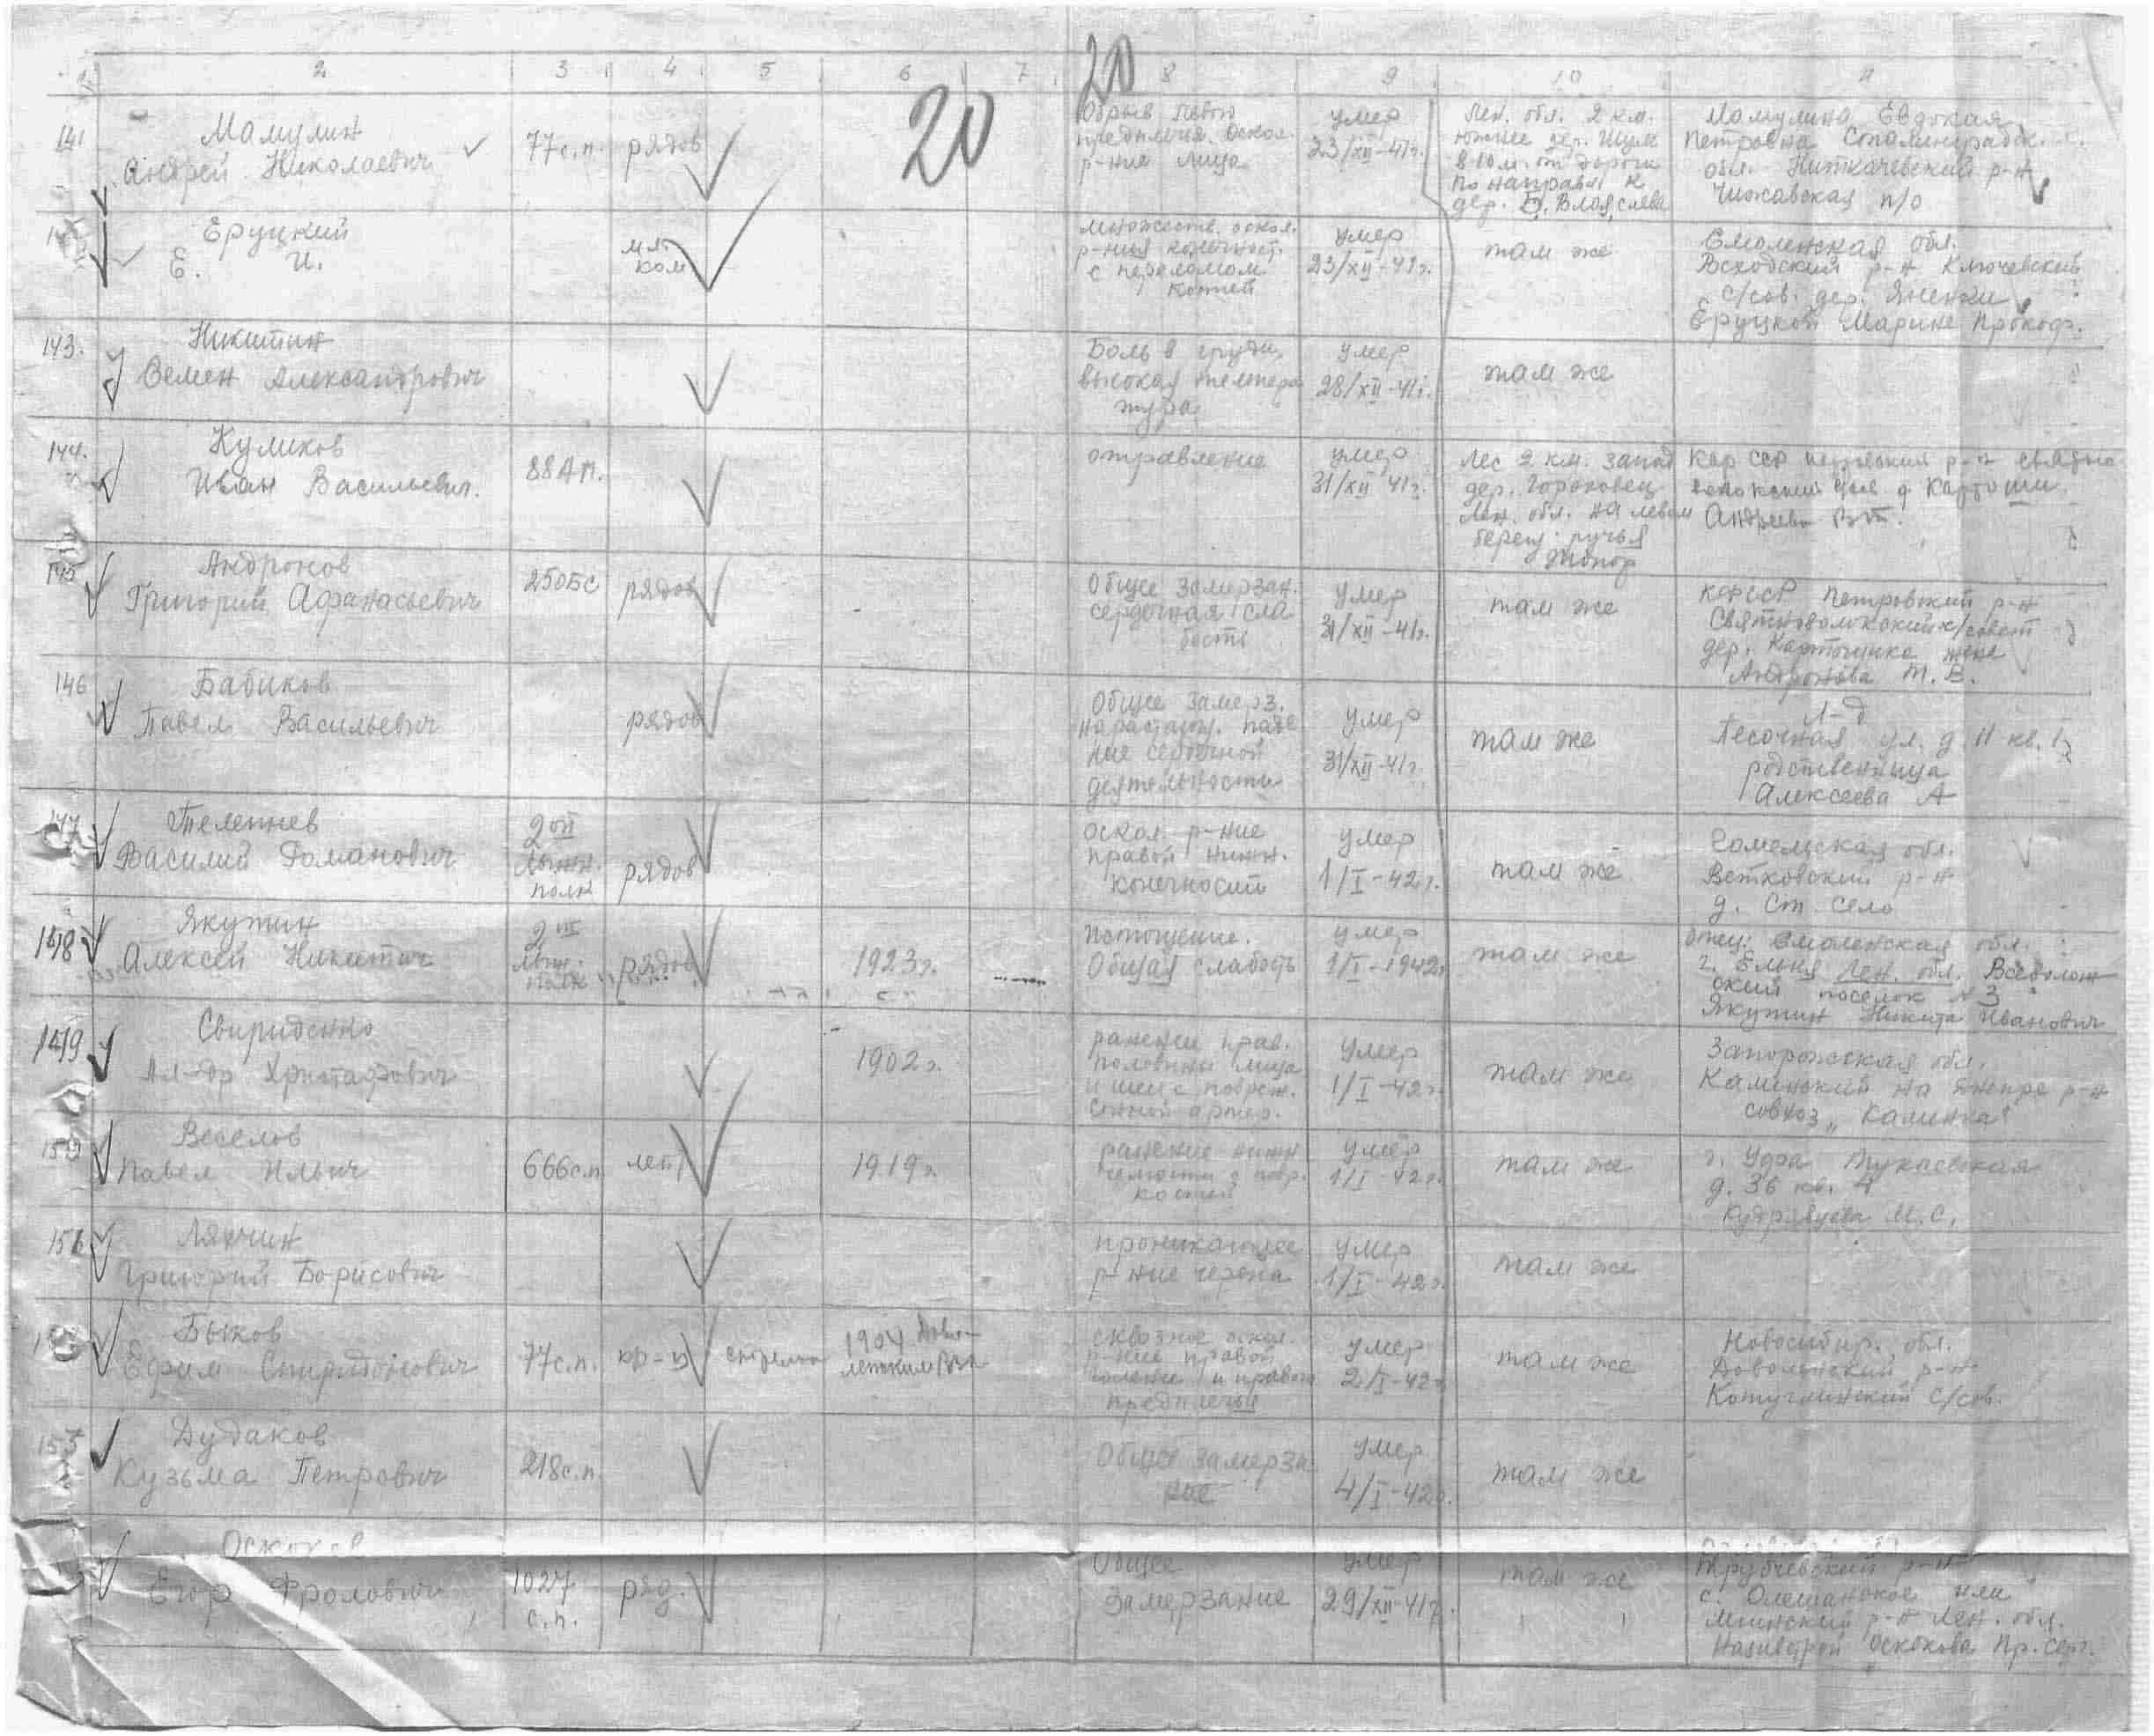 20
1 2 3 4 5 6 7 8 9 10 11
20
141 Мамулин
Андрей Николаевич
77 с.п. рядов
Обрыв левого
предплечья. Оскол.
р-ние лица
умер
23/XII-41г.
Лен. обл. 2 км.
южнее дер. Шум
в 10 м. от дороги
по направл. к
дер. Б. Влоя,
Мамулина Евдокия
Петровна Сталинградск.
обл. р-н
Чижавская п/о
Еруцкий
Е. И.
мл.
ком
множеств. оскол.
р-ния конечност.
с переломом
костей
умер
23/XII-41г.
там же
Смоленская обл.
Всходский р-н Ключевский
с/сов. дер.
Еруцкой Марине Прокоф.
143. Никитин
Семен Александрович
Боль в груди,
высокая темпера
тура
умер
28/XII-41г.
там же
144. Куликов
Иван Васильевич.
88 АП.
отравление
умер
31/XII 41г.
Лес 2 км. запад
дер. Гороховец
Лен. обл. на левом
берегу ручья
Топор
Кар ССР р-н
145 Андронов
Григорий Афанасьевич
250БС рядов
Общее замерзан.
сердечная сла
бость
умер
31/XII-41г.
там же
КФССР Петровский р-н
с/совет
дер. жене
Андронова Т. В.
146 Бабиков
Павел Васильевич
рядов
Общее замерз.
нарастающ. паде
ние сердечной
деятельности
умер
31/XII-41г.
там же
Л-д
Песочная ул. д. 11 кв.
родственница
Алексеева А
147 Телепнев
Василий Романович
2ой
лыжн.
полк
рядов
оскол. р-ние
правой нижн.
конечности
умер
1/I-42г.
там же
Гомельская обл.
Ветковский р-н
д. Ст. село
148 Якутин
Алексей Никитич
2
лыж.
полк
рядов
1923г.
Истощение.
Общая слабость
умер
1/I-1942г
там же
отец: Смоленская обл.
г. Ельня Лен. обл. Всеволож
ский поселок N 3
Якутин Никита Иванович
149 Свириденко
Ал-др Христафович
1902г.
ранение прав.
половины лица
и шеи с повреж.
сонной артер.
умер
1/I-42г.
там же
Запорожская обл.
Каменский на Днепре р-н
совхоз „Каменка"
150 Веселов
Павел Ильич
666с.п. лейт
1919г.
ранение нижн
костей
умер
1/I-42г.
там же
г. Уфа Тукаевская
д. 36 кв. 4
М. С.
151 Ляхчин
Григорий Борисович
проникающее
р-ние черепа
умер
1/I-42г.
там же
Быков
Ефим Спиридонович
77с.п. кр-ц
1904
сквозное оскол.
р-ние правой
голени и правого
предплечья
умер
2/I-42г
там же
Новосибир. обл.
Доволенский р-н
с/сов.
153 Дудаков
Кузьма Петрович
218с.п.
Общее замерза
ние
умер
4/I-42г.
там же
Егор Фролович
1027
с.п.
ряд.
Общее
замерзание
умер
29/XII-41г.
там же
Трубчевский р-н
с. или
р-н Лен. обл.